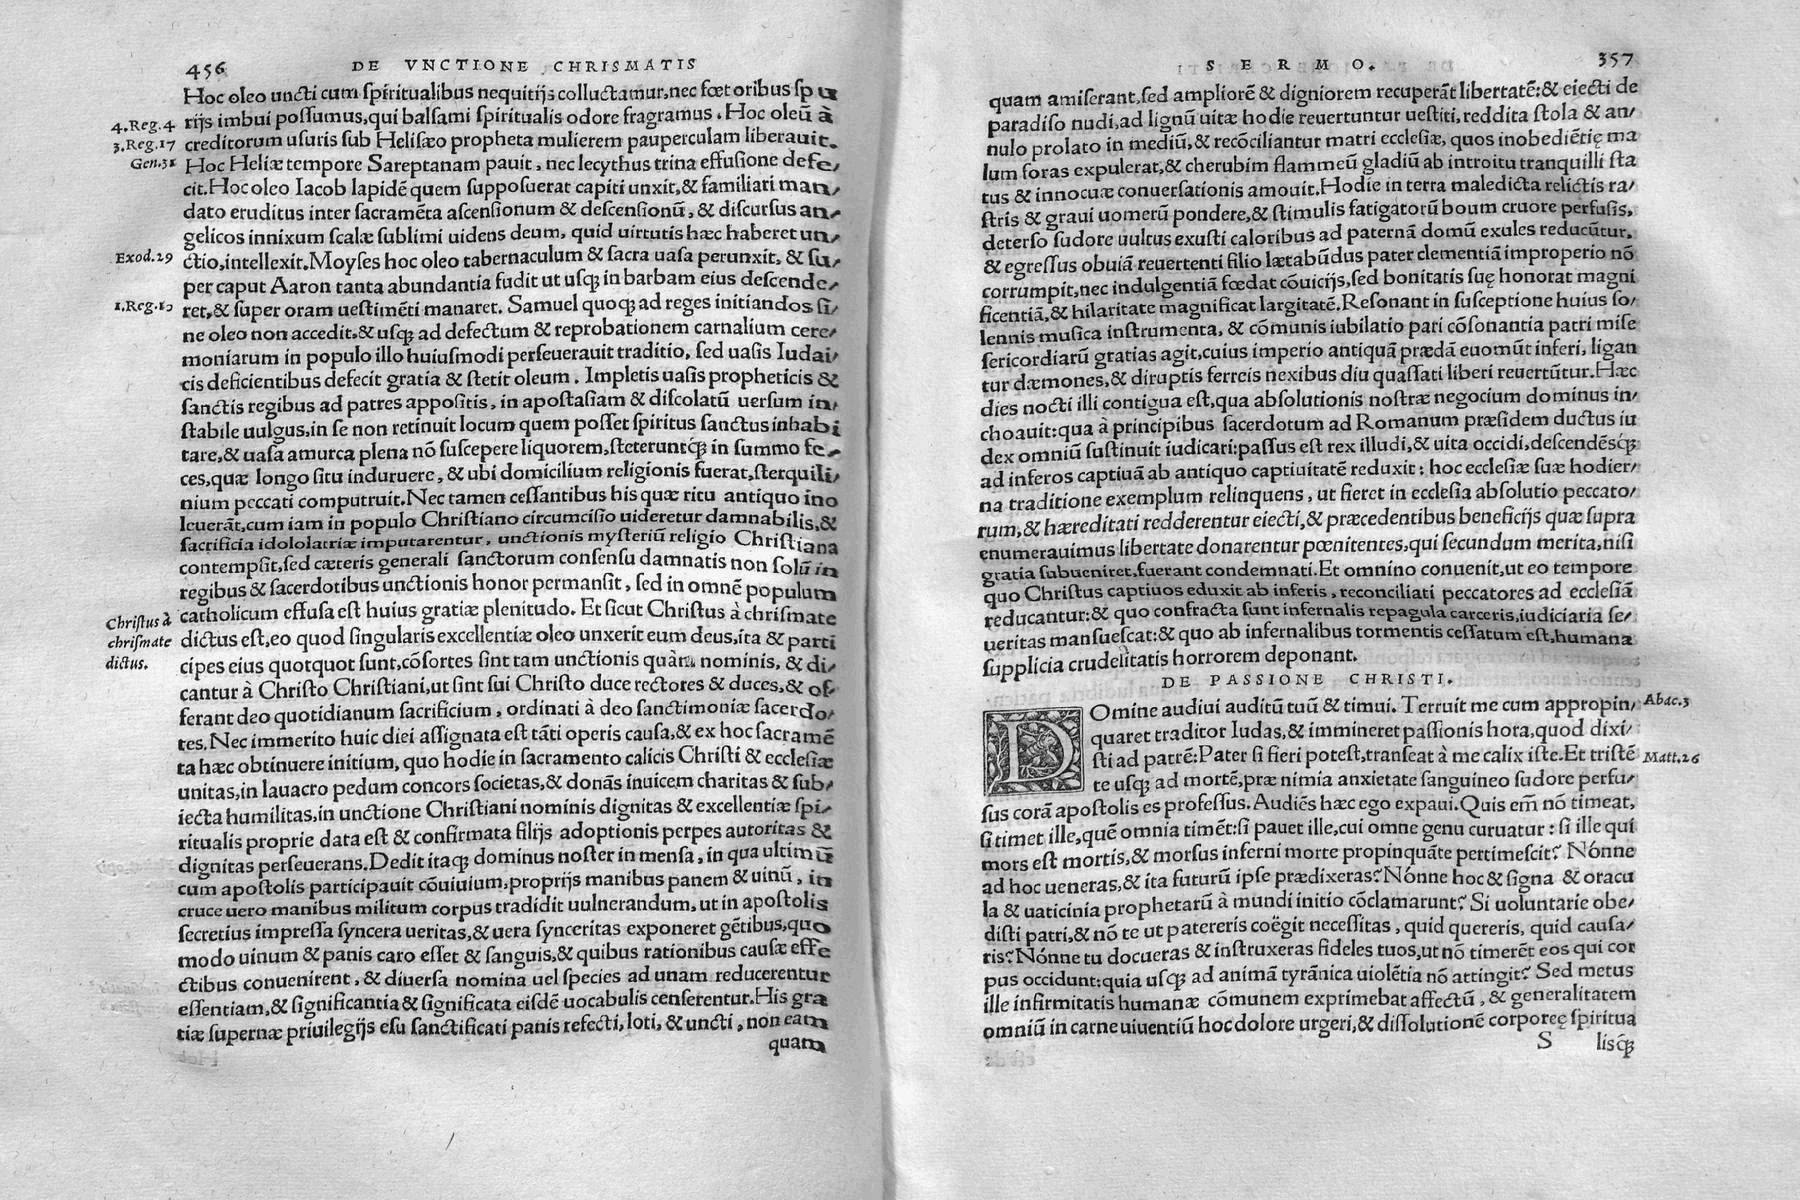 456 DE VNCTIONE CHRISMATIS
Hoc oleo uncti cum spiritualibus nequitijs colluctamur, nec fœtoribus spu
4. Reg. 4 rijs imbui possumus, qui balsami spiritualis odore fragramus. Hoc oleũ à
3. Reg. 17 creditorum usuris sub Helisæo propheta mulierem pauperculam liberauit.
Gen. 31 Hoc Heliæ tempore Sareptanam pauit, nec lecythus trina effusione defe,
cit. Hoc oleo Iacob lapidẽ quem supposuerat capiti unxit, & familiari man,
dato eruditus inter sacramẽta ascensionum & descensionũ, & discursus an,
gelicos innixum scalæ sublimi uidens deum, quid uirtutis hæc haberet un,
Exod. 29 ctio, intellexit. Moyses hoc oleo tabernaculum & sacra uasa perunxit, & su,
per caput Aaron tanta abundantia fudit ut usq; in barbam eius descende,
1. Reg. ret, & super oram uestimẽti manaret. Samuel quoq; ad reges initiandos si,
ne oleo non accedit, & usq; ad defectum & reprobationem carnalium cere,
moniarum in populo illo huiusmodi perseuerauit traditio, sed uasis Iudai,
cis deficientibus defecit gratia & stetit oleum. Impletis uasis propheticis &
sanctis regibus ad patres appositis, in apostasiam & discolatũ uersum in,
stabile uulgus, in se non retinuit locum quem posset spiritus sanctus inhabi
tare, & uasa amurca plena nõ suscepere liquorem, steteruntq; in summo fe,
ces, quæ longo situ induruere, & ubi domicilium religionis fuerat, sterquili,
nium peccati computruit. Nec tamen cessantibus his quæ ritu antiquo ino
leuerãt, cum iam in populo Christiano circumcisio uideretur damnabilis, &
sacrificia idololatriæ imputarentur, unctionis mysteriũ religio Christiana
contempsit, sed cæteris generali sanctorum consensu damnatis non solũ in
regibus & sacerdotibus unctionis honor permansit, sed in omnẽ populum
catholicum effusa est huius gratiæ plenitudo. Et sicut Christus à chrismate
Christus à
chrismate dictus est, eo quod singularis excellentiæ oleo unxerit eum deus, ita & parti
dictus. cipes eius quotquot sunt, cõsortes sint tam unctionis quàm nominis, & di,
cantur à Christo Christiani, ut sint sui Christo duce rectores & duces, & of,
ferant deo quotidianum sacrificium, ordinati à deo sanctimoniæ sacerdo,
tes. Nec immerito huic diei assignata est tãti operis causa, & ex hoc sacramẽ
ta hæc obtinuere initium, quo hodie in sacramento calicis Christi & ecclesiæ
unitas, in lauacro pedum concors societas, & donãs inuicem charitas & sub,
iecta humilitas, in unctione Christiani nominis dignitas & excellentiæ spi,
ritualis proprie data est & confirmata filijs adoptionis perpes autoritas &
dignitas perseuerans. Dedit itaq; dominus noster in mensa, in qua ultimũ
cum apostolis participauit cõuiuium, proprijs manibus panem & uinũ, in
cruce uero manibus militum corpus tradidit uulnerandum, ut in apostolis
secretius impressa syncera ueritas, & uera synceritas exponeret gẽtibus, quo
modo uinum & panis caro esset & sanguis, & quibus rationibus causæ effe
ctibus conuenirent, & diuersa nomina uel species ad unam reducerentur
essentiam, & significantia & significata eisdẽ uocabulis censerentur. His gra
tiæ supernæ priuilegijs esu sanctificati panis refecti, loti, & uncti, non eam
quam
SERMO. 357
quam amiserant, sed ampliorẽ & digniorem recuperãt libertatẽ: & eiecti de
paradiso nudi, ad lignũ uitæ hodie reuertuntur uestiti, reddita stola & an,
nulo prolato in mediũ, & recõciliantur matri ecclesiæ, quos inobediẽtię ma
lum foras expulerat, & cherubim flammeũ gladiũ ab introitu tranquilli sta
tus & innocuæ conuersationis amouit. Hodie in terra maledicta relictis ra,
stris & graui uomerũ pondere, & stimulis fatigatorũ boum cruore perfusis,
deterso sudore uultus exusti caloribus ad paternã domũ exules reducũtur,
& egressus obuiã reuertenti filio lætabũdus pater clementiã improperio nõ
corrumpit, nec indulgentiã fœdat cõuicijs, sed bonitatis suę honorat magni
ficentiã, & hilaritate magnificat largitatẽ. Resonant in susceptione huius so,
lennis musica instrumenta, & cõmunis iubilatio pari cõsonantia patri mise
sericordiarũ gratias agit, cuius imperio antiquã prædã euomũt inferi, ligan
tur dæmones, & diruptis ferreis nexibus diu quassati liberi reuertũtur. Hæc
dies nocti illi contigua est, qua absolutionis nostræ negocium dominus in,
choauit: qua à principibus sacerdotum ad Romanum præsidem ductus iu
dex omniũ sustinuit iudicari: passus est rex illudi, & uita occidi, descendẽsq;
ad inferos captiuã ab antiquo captiuitatẽ reduxit: hoc ecclesiæ suæ hodier,
na traditione exemplum relinquens, ut fieret in ecclesia absolutio peccato,
rum, & hæreditati redderentur eiecti, & præcedentibus beneficijs quæ supra
enumerauimus libertate donarentur pœnitentes, qui secundum merita, nisi
gratia subueniret, fuerant condemnati. Et omnino conuenit, ut eo tempore
quo Christus captiuos eduxit ab inferis, reconciliati peccatores ad ecclesiã
reducantur: & quo confracta sunt infernalis repagula carceris, iudiciaria se,
ueritas mansuescat: & quo ab infernalibus tormentis cessatum est, humana
supplicia crudelitatis horrorem deponant.
DE PASSIONE CHRISTI.
DOmine audiui auditũ tuũ & timui. Terruit me cum appropin, Abac. 3
quaret traditor Iudas, & immineret passionis hora, quod dixi,
sti ad patrẽ: Pater si fieri potest, transeat à me calix iste. Et tristẽ Matt. 26
te usq; ad mortẽ, præ nimia anxietate sanguineo sudore perfu,
sus corã apostolis es professus. Audiẽs hæc ego expaui. Quis em̃ nõ timeat,
si timet ille, quẽ omnia timẽt: si pauet ille, cui omne genu curuatur: si ille qui
mors est mortis, & morsus inferni morte propinquãte pertimescit? Nónne
ad hoc ueneras, & ita futurũ ipse prædixeras? Nónne hoc & signa & oracu
la & uaticinia prophetarũ à mundi initio cõclamarunt? Si uoluntarie obe,
disti patri, & nõ te ut patereris coëgit necessitas, quid quereris, quid causa,
ris? Nónne tu docueras & instruxeras fideles tuos, ut nõ timerẽt eos qui cor
pus occidunt: quia usq; ad animã tyrãnica uiolẽtia nõ attingit? Sed metus
ille infirmitatis humanæ cõmunem exprimebat affectũ, & generalitatem
omniũ in carne uiuentiũ hoc dolore urgeri, & dissolutionẽ corporeę spiritua
S lisq;